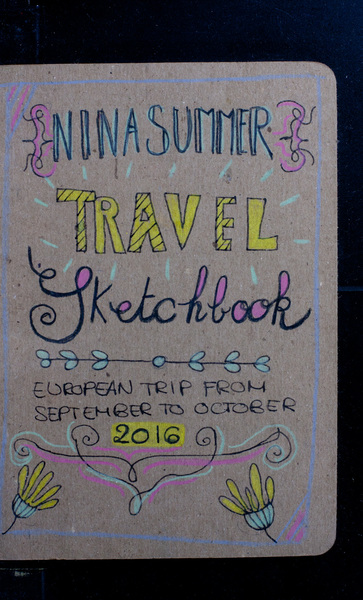 NINA SUMMER
TRAVEL
Sketchbook
EUROPEAN TRIP FROM
SEPTEMBER TO OCTOBER
2016